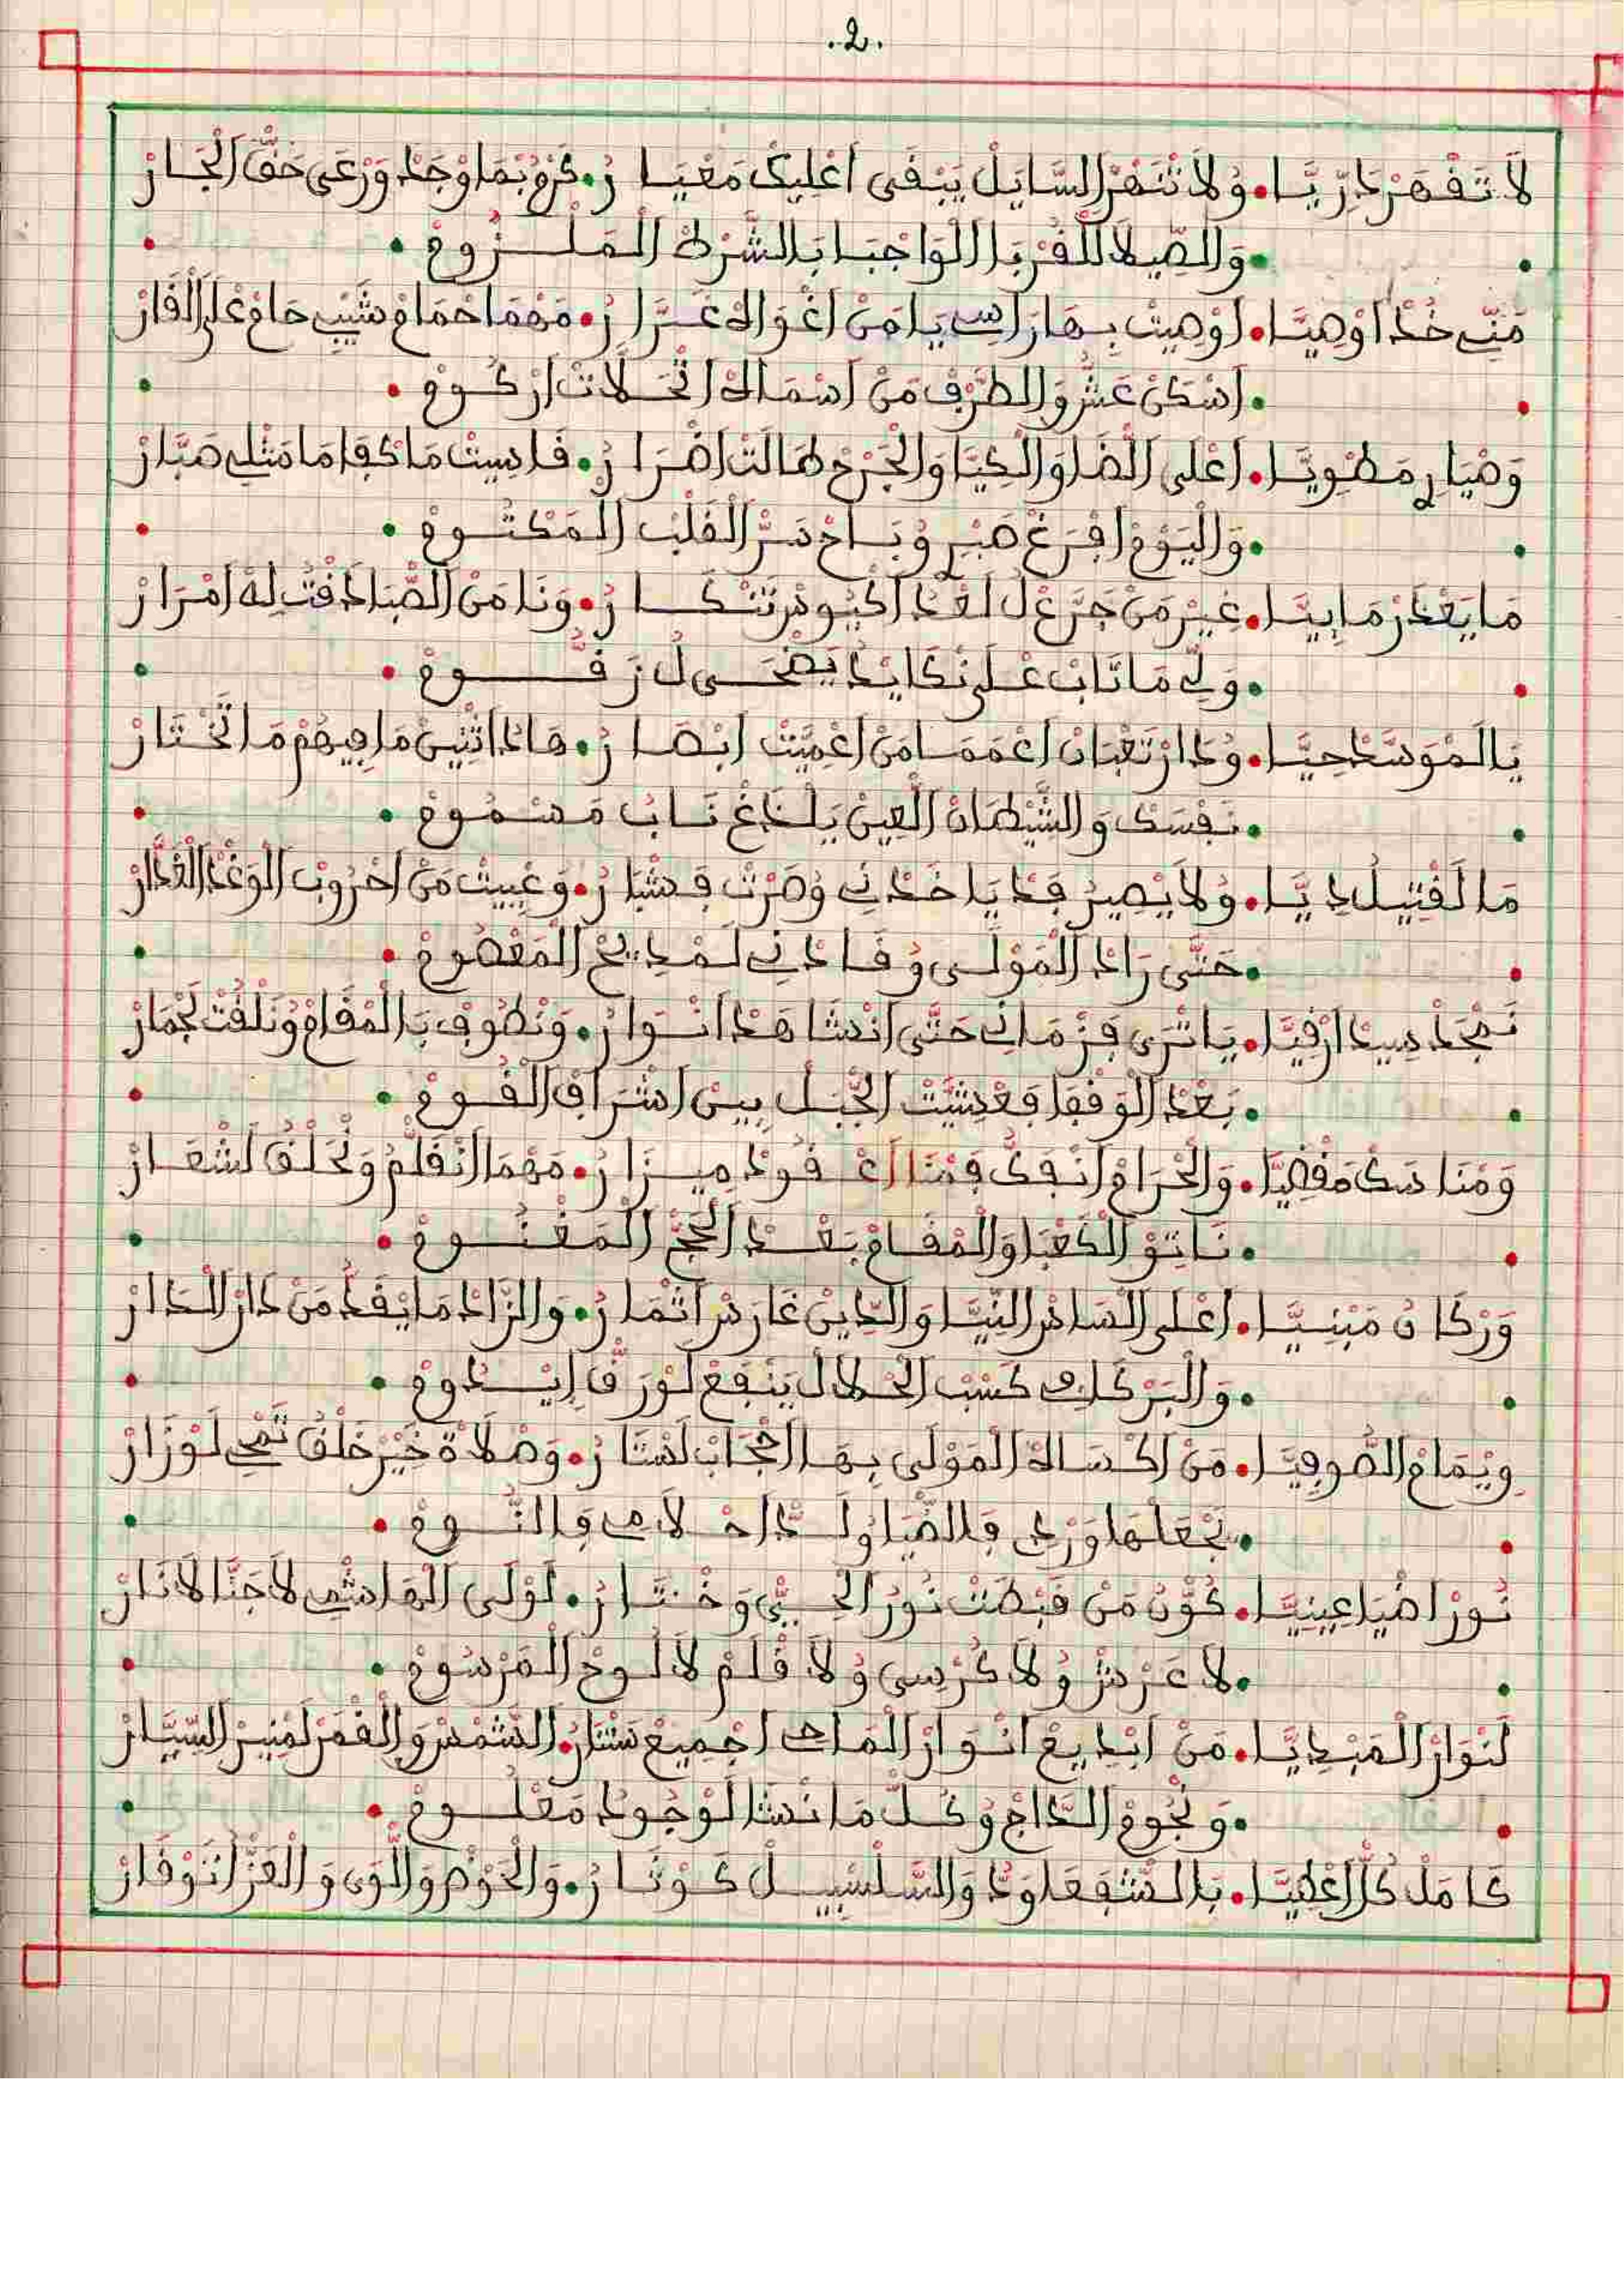 .2.
لَا تَقْهَرْ دَرِّيَّا • وُلَا تَنْهَرْ السَّايَلْ يَبْقَى اعْلِيكْ مَعْيَارُ • كَرْمُ بْمَا وْجَدْ وَرْعَى حَقّْ الْجَارْ
• وَالصِّيلَا لَلْقُرْبَا الْوَاجْبَا بَالشَّرْطْ الْمَلْزُومْ •
مَنِّي خُدْ اوْصِيَّا • اوْصِيتْ بِهَا رَاسِي يَا مَنْ اغْوَاهْ غَرَّارُ • مَهْمَا حْمَامْ شَيْبِي حَامْ عْلَى الْقَارْ
• اسْكَنْ عَشُّ وَالطَّرْفْ مَنْ اسْمَاهْ اتْحَلَّاتْ ارْكُومْ •
وَصْيَارِ مَطْوِيَّا • اعْلَى اللّْضَا وَالْكِيَّا وَالْجَرْحْ طَالَتْ اضْرَارُ • قَاسِيتْ مَا كْفَا مَا مَثْلِي صَبَّارْ
• وَالْيَوْمْ افْرَغْ صَبْرِ وُبَاحْ سَرّْ الْقَلْبْ الْمَكْتُومْ •
مَا يَعْدَرْ مَا بِيَّا • غِيرْ مَنْ جَرَّعْ لُ لَعْدَا اكْيُوسْ تَنْكَارُ • وَنَا مَنْ الصّْبَا دَقْتْ لِهْ امْرَارْ
• وَلِّي مَا تَابْ عْلَى نْكَايْدُ يَضْحَى لُ زَقُّومْ •
يَا لَمْوَسَّدْ حِيَّا • وُدَارْ تَعْبَانْ اعْمَمَا مَنْ اعْمِيَّتْ ابْصَارُ • هَادَا اثْنِينْ مَا فِيهُمْ مَا تَّخْتَارْ
• نَفْسَكْ وَالشَّيْطَانْ الْعِينْ يَلْدَاغْ نَابُ مَسْمُومْ •
مَا لَقْتِيلُ دِيَّا • وُلَا يْصِيرْ فَدْيَا خَدْنِي وُصَرْتْ فَشْبَارُ • وَعْيِيتْ مَنْ احْرُوبْ الْوَغْدْ الْغَدَّارْ
• حَتَّى رَادْ الْمَوْلَى وُقَادْنِي لَمْدِيحْ الْمَعْصُومْ •
نَمْجَدْ سِيدْ ارْقِيَّا • يَا تْرَى فَزْمَانِي حَتَّى انْشَاهَدْ انْوَارُ • وَنْطُوفْ بَالْمْقَامْ وُنَلْقُتْ لَجْمَارْ
• بَعْدْ الْوَقْفَا فَعْشِيَّتْ الْجْبَلْ بِينْ اشْرَافْ الْقُومْ •
وَمْنَاسَكْ مَقْضِيَّا • وَالْحْرَامْ انْفَكُّ فَمْنَا اعْقُودْ مِيزَارُ • مَهْمَا انْقَلَّمُ وَنْحَلْقُ لَشْعَارْ
• نَاتِوْ الْكَعْبَا وَالْمْقَامْ بَعْدْ الْحَجّْ الْمَغْنُومْ •
وَرْكَانُ مَبْنِيَّا • اعْلَى السَاسْ النِّيَّا وَالدِّينْ غَارَسْ اثْمَارُ • وَالزَّادْ مَا يْفَدُ مَنْ دَارْ الْدَارْ
• وَالْبَرْ كَلِي كَسْبْ الْحْلَالْ يَنْفَعْ لَوْرَقّْ إِيْدُومْ •
وِيْمَامْ الصُّوفِيَّا • مَنْ اكْسَاهْ الْمَوْلَى بِهَا احْجَابْ لَسْتَارُ • وَصْلَاةْ خَيْرْ خَلْقُ تَمْحِي لَوْزَارْ
• نَجْعَلْهَا وَرْدِي فَالضّْيَا وُلَدَّاحْ لَامِي فَالنُّومْ •
نُورْ اضْيَا عِينِيَّا • كُوُّنُ مَنْ قَبْطَتْ نُورْ الْحِبِّي وَخْتَارُ • لَوْلَى الْهَاشْمِي لَا جَنَّا لَا نَارْ
• لَا عَرْشْ وُلَا كُرْسِي وُلَا قْلَمْ لَا لُوحْ الْمَرْسُومْ •
لَنْوَارْ الْمَبْدِيَّا • مَنْ ابْدِيعْ انْوَارْ الْمَاحِي اجْمِيعْ سْتَنَارُ • الشَّمْسْ وَالْقْمَرْ لَمْنِيرْ السِّيَّارْ
• وَنْجُومْ الدَّاجْ وُكُلّْ مَا نْشَا لَوْجُودُ مَعْلُومْ •
كَامَلْ كُلّْ اعْطِيَّا • بَالشّْفَعَا وَدُ وَالسَّلْسَبِيلْ كَوْثَارُ • وَالْحَوْضْ وَالْلّْوَى وَالْعَزّْ انْوْقَارْ